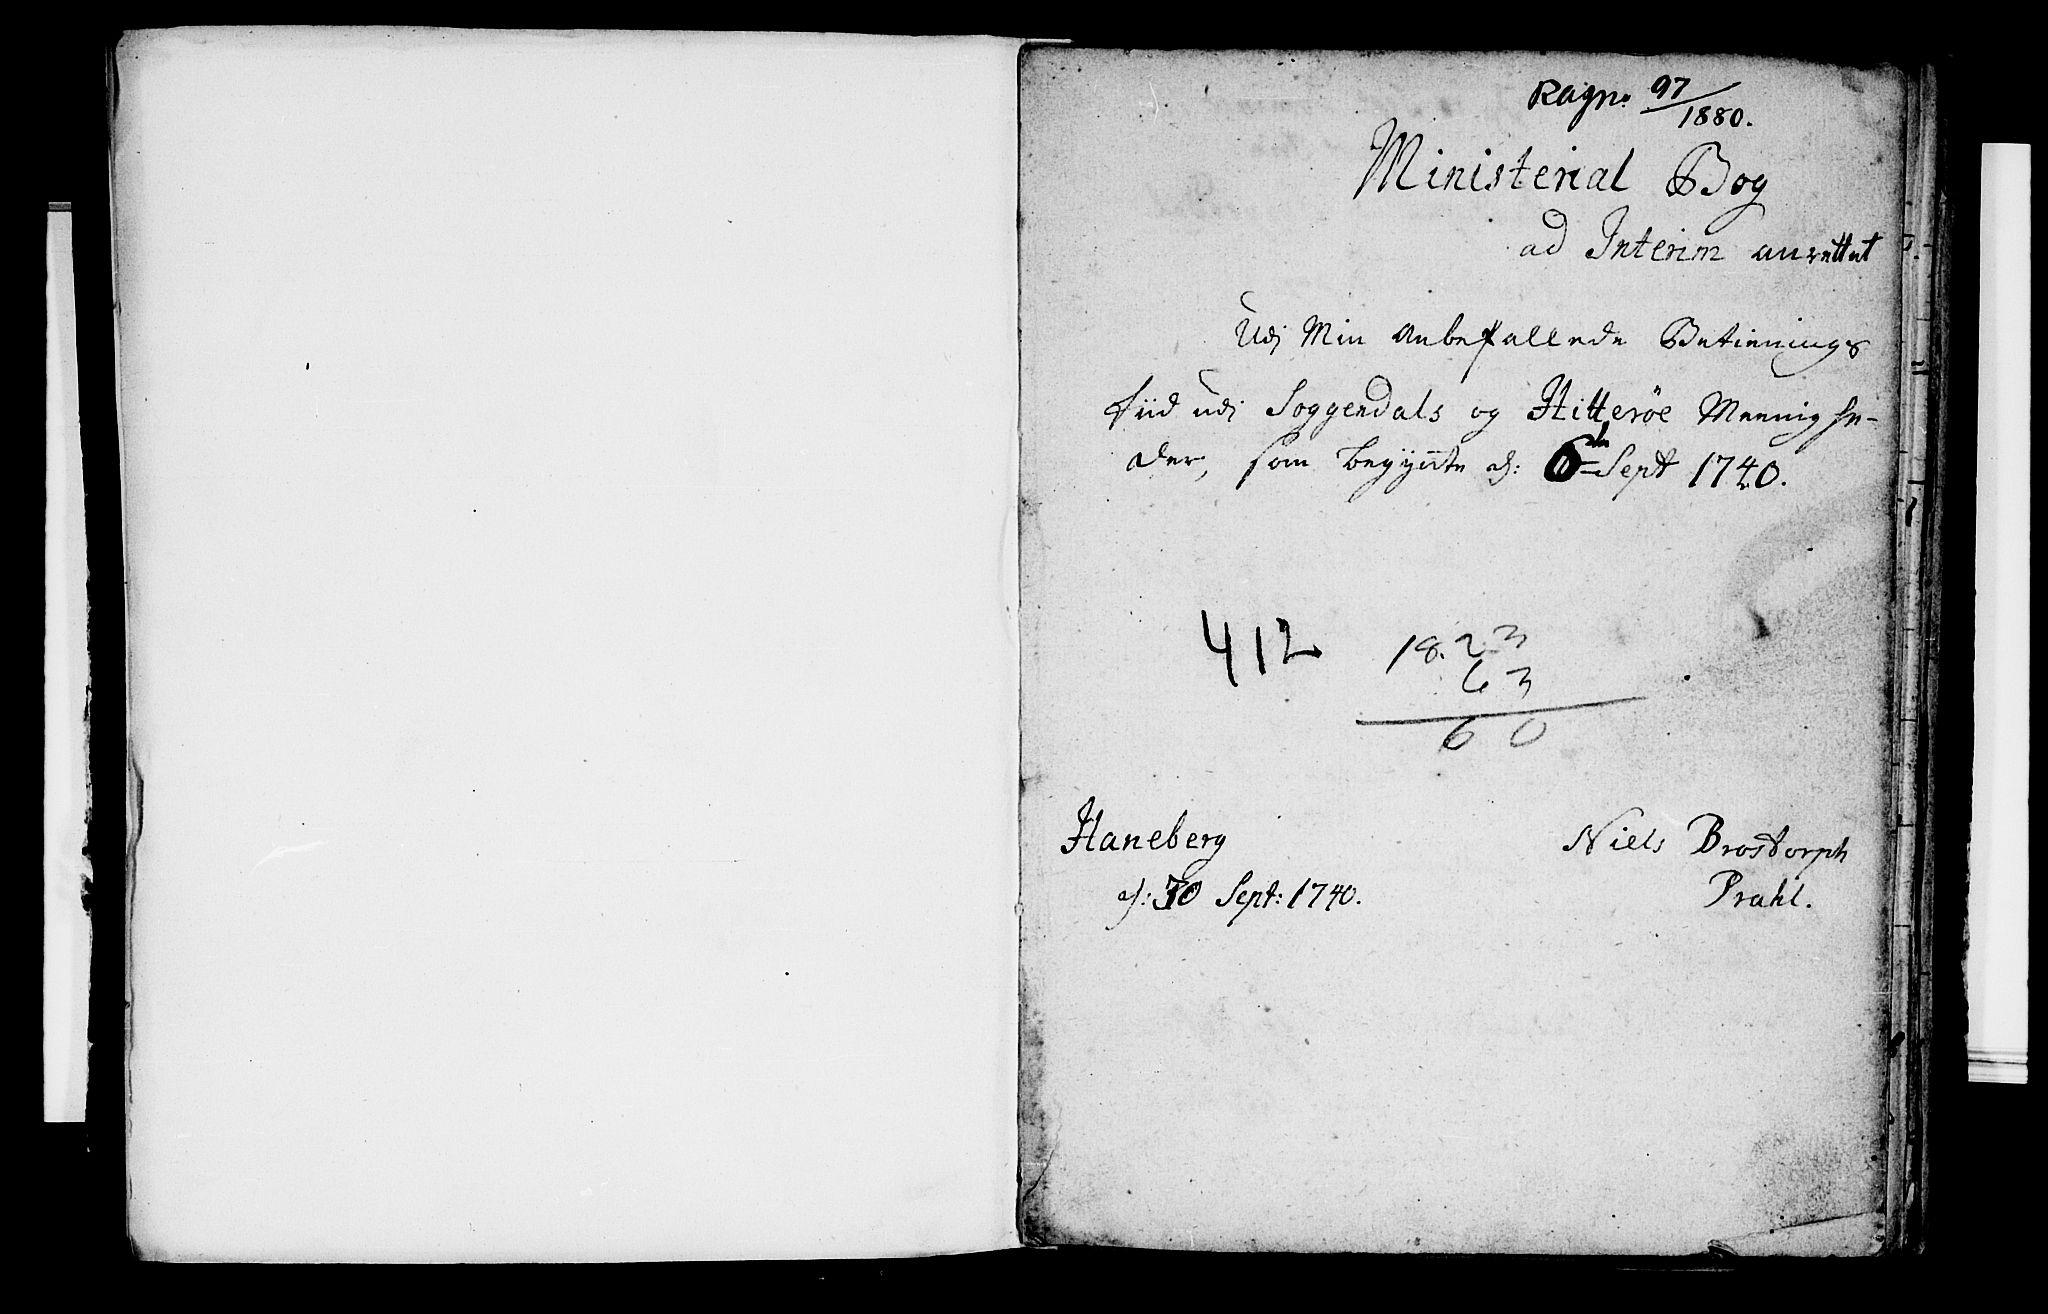 Ragn. 97/1880.
Ministerial Bog
ad Interim anrettet
Udi Min Anbefallede Betienings
Tiid udi Soggendals og Hitterøe Meenighe-
der, som begÿnte d: 6te Sept 1740.
412 18.23
63
60
Haneberg Niels Brostorph
d: 30 Sept: 1740. Prahl.